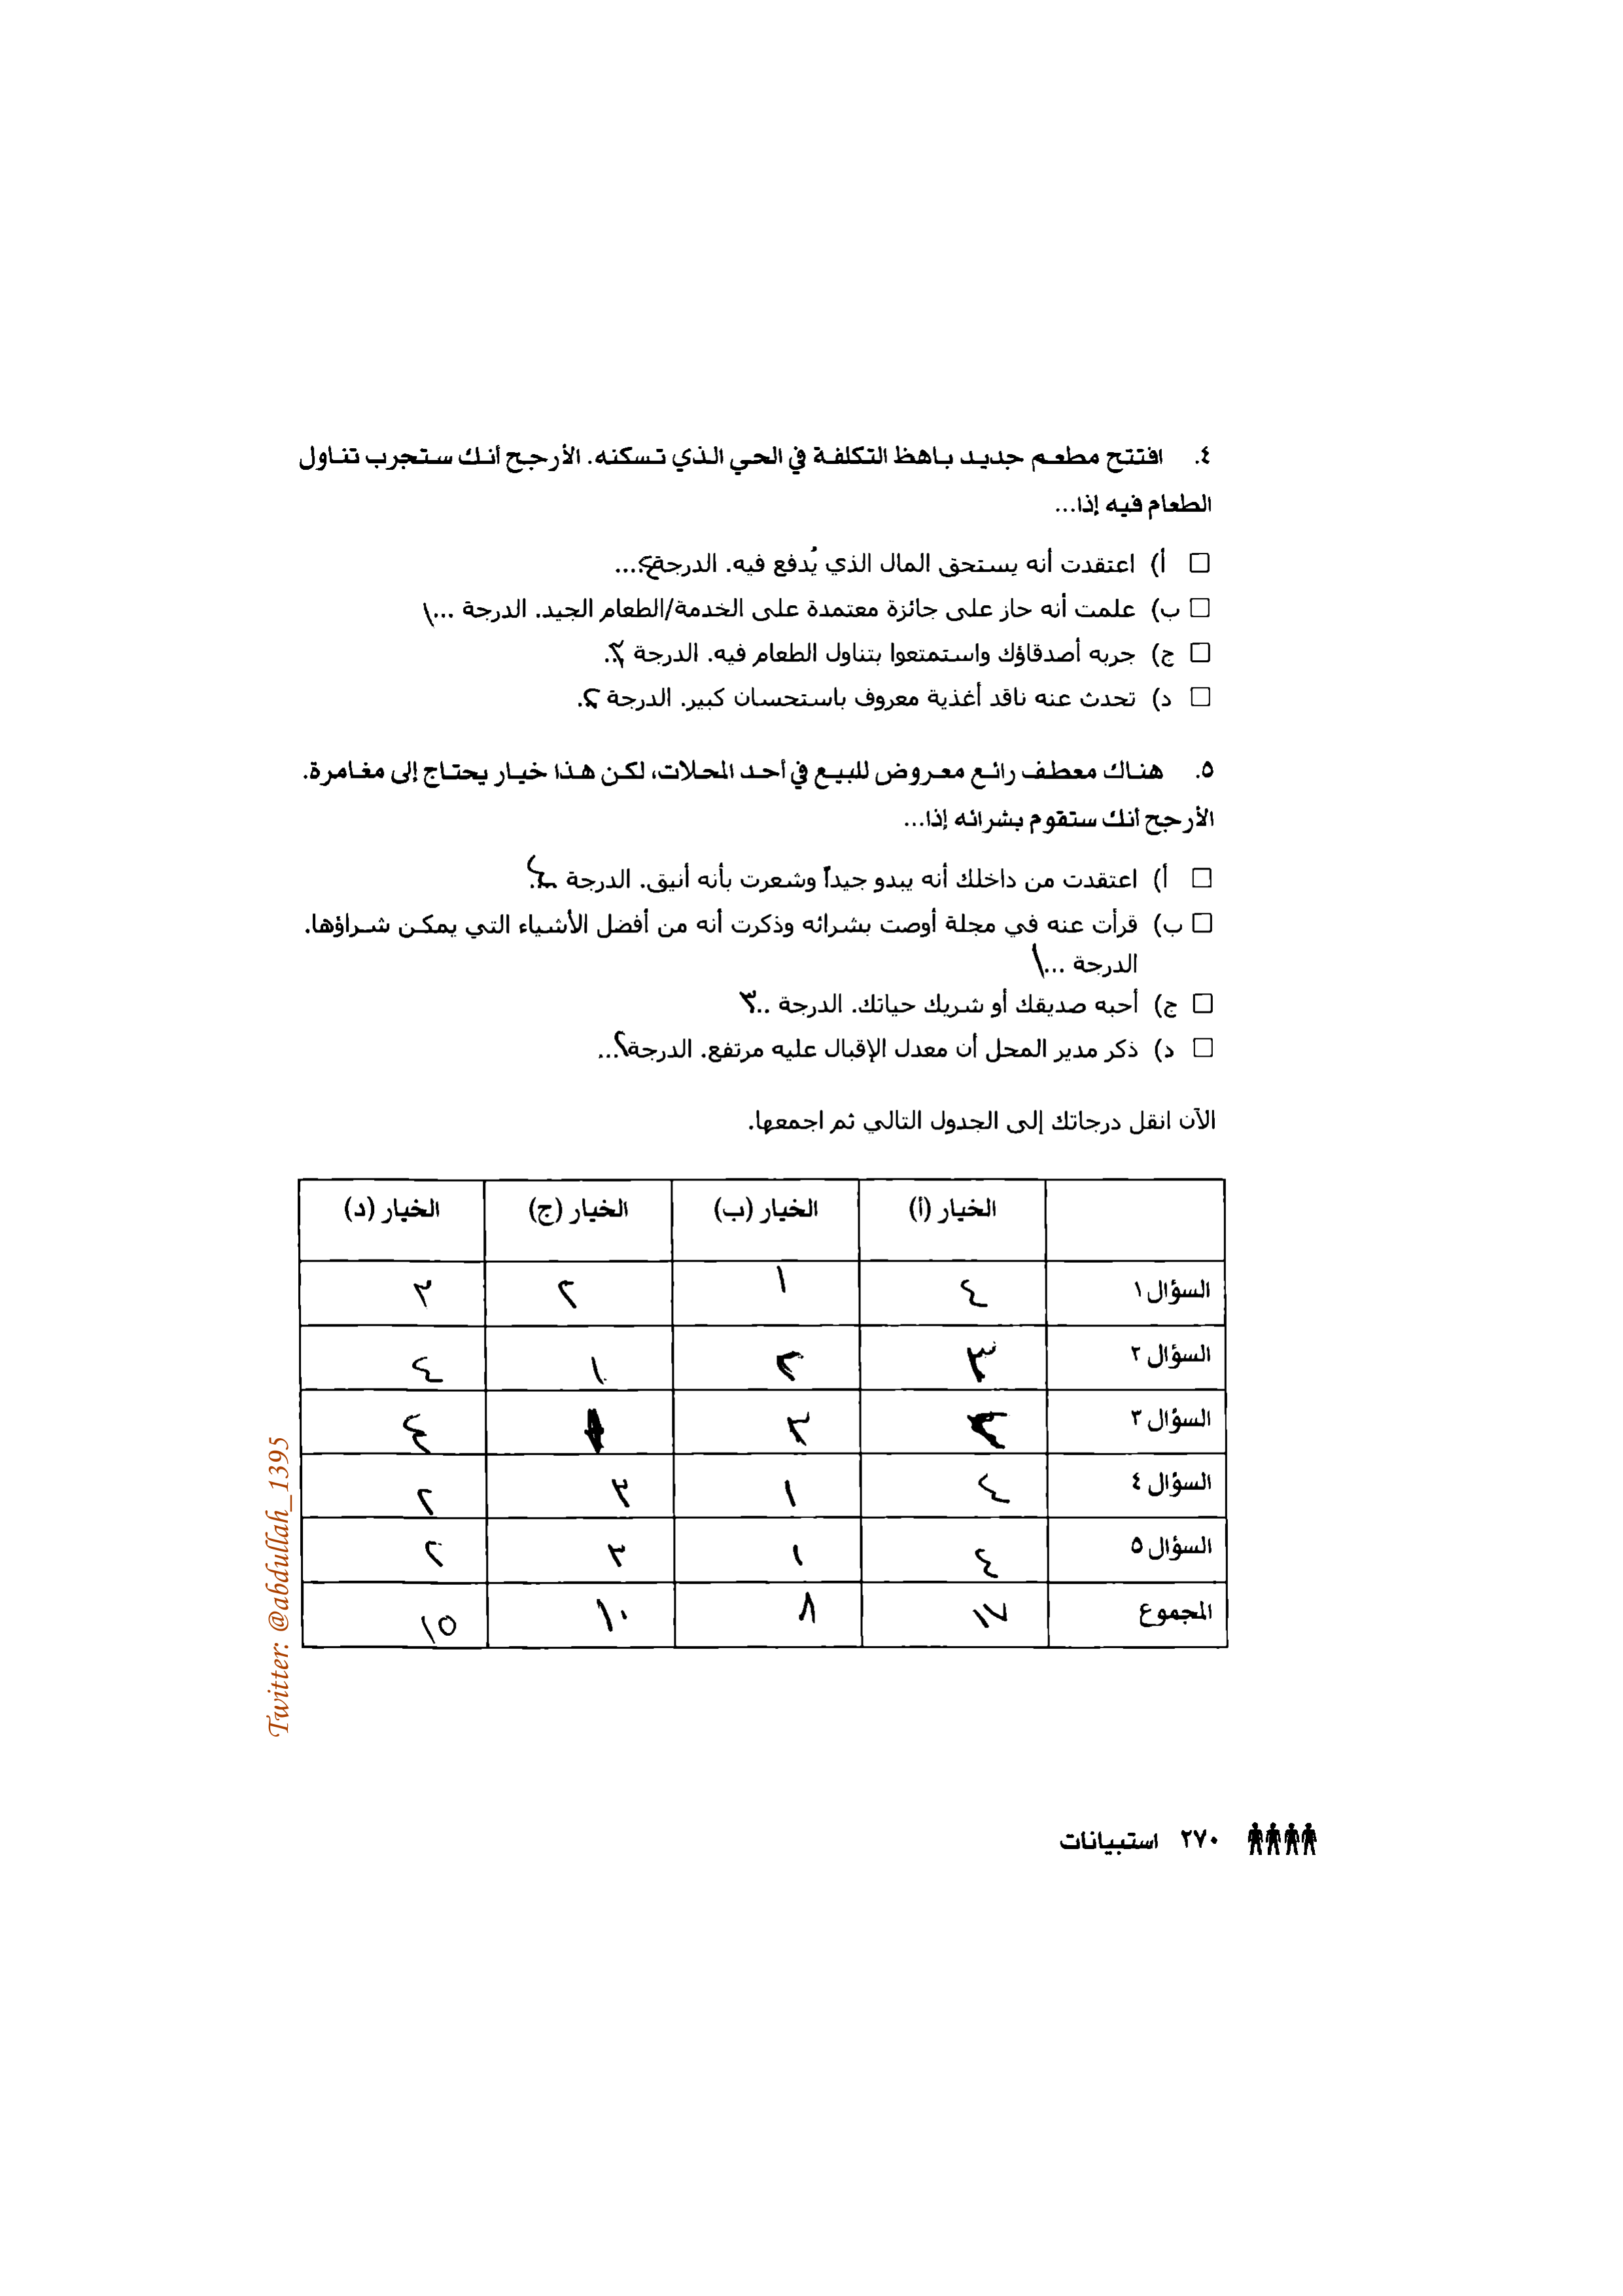 ٤. افتتح مطعم جديد باهظ التكلفة في الحي الذي تسكنه. الأرجح أنك ستجرب تناول
الطعام فيه إذا...
أ) اعتقدت أنه يستحق المال الذي يُدفع فيه. الدرجة ٤...
ب) علمت أنه حاز على جائزة معتمدة على الخدمة/الطعام الجيد. الدرجة ...١
ج) جربه أصدقاؤك واستمتعوا بتناول الطعام فيه. الدرجة ٣..
د) تحدث عنه ناقد أغذية معروف باستحسان كبير. الدرجة ٢.
٥. هناك معطف رائع معروض للبيع في أحد المحلات، لكن هذا خيار يحتاج إلى مغامرة.
الأرجح أنك ستقوم بشرائه إذا...
أ) اعتقدت من داخلك أنه يبدو جيداً وشعرت بأنه أنيق. الدرجة ...٤
ب) قرأت عنه في مجلة أوصت بشرائه وذكرت أنه من أفضل الأشياء التي يمكن شراؤها.
الدرجة ...١
ج) أحبه صديقك أو شريك حياتك. الدرجة ..٣
د) ذكر مدير المحل أن معدل الإقبال عليه مرتفع. الدرجة ٢...
الآن انقل درجاتك إلى الجدول التالي ثم اجمعها.
الخيار (أ) الخيار (ب) الخيار (ج) الخيار (د)
السؤال ١ ٤ ١ ٢ ٣
السؤال ٢ ٣ ٢ ١ ٤
السؤال ٣ ٢ ٣ ٤
السؤال ٤ ٤ ١ ٣ ٢
السؤال ٥ ٤ ١ ٣ ٢
المجموع ١٧ ٨ ١٠ ١٥
Twitter: @abdullah_1395
٢٧٠ استبيانات